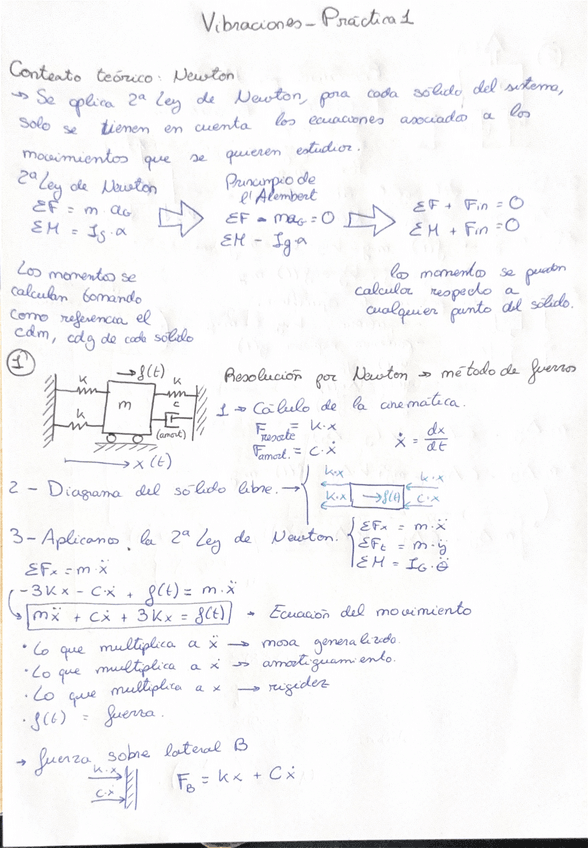 Vibraciones - Práctica 1
Contexto teórico: Newton
→ Se aplica 2ª Ley de Newton, para cada sólido del sistema,
solo se tienen en cuenta las ecuaciones asociadas a los
movimientos que se quieren estudiar.
2ª Ley de Newton
ΣF = m · aG
ΣM = Ig · α
Los momentos se
calculan tomando
como referencia el
cdm, cdg de cada sólido
Principio de
d'Alembert
ΣF - maG = 0
ΣM - Ig α
ΣF + Fin = 0
ΣM + Fin = 0
los momentos se pueden
calcular respecto a
cualquier punto del sólido.
1
→ f(t)
K
K
m
K
c
(amort)
→ x(t)
Resolución por Newton → método de fuerzas
1 → Cálculo de la cinemática.
Fresorte = K · x
Famort. = C · ẋ
ẋ = dx/dt
2 - Diagrama del sólido libre. →
K·x
K·x
→ f(t)
K·x
C·ẋ
3 - Aplicamos la 2ª Ley de Newton:
ΣFx = m · ẍ
ΣFt = m · ÿ
ΣM = IG · θ̈
ΣFx = m · ẍ
-3Kx - Cẋ + f(t) = m · ẍ
mẍ + Cẋ + 3Kx = f(t) → Ecuación del movimiento
· Lo que multiplica a ẍ → masa generalizada.
· Lo que multiplica a ẋ → amortiguamiento.
· Lo que multiplica a x → rigidez
· f(t) = fuerza.
→ fuerza sobre lateral B
K·x
C·ẋ
FB = Kx + Cẋ